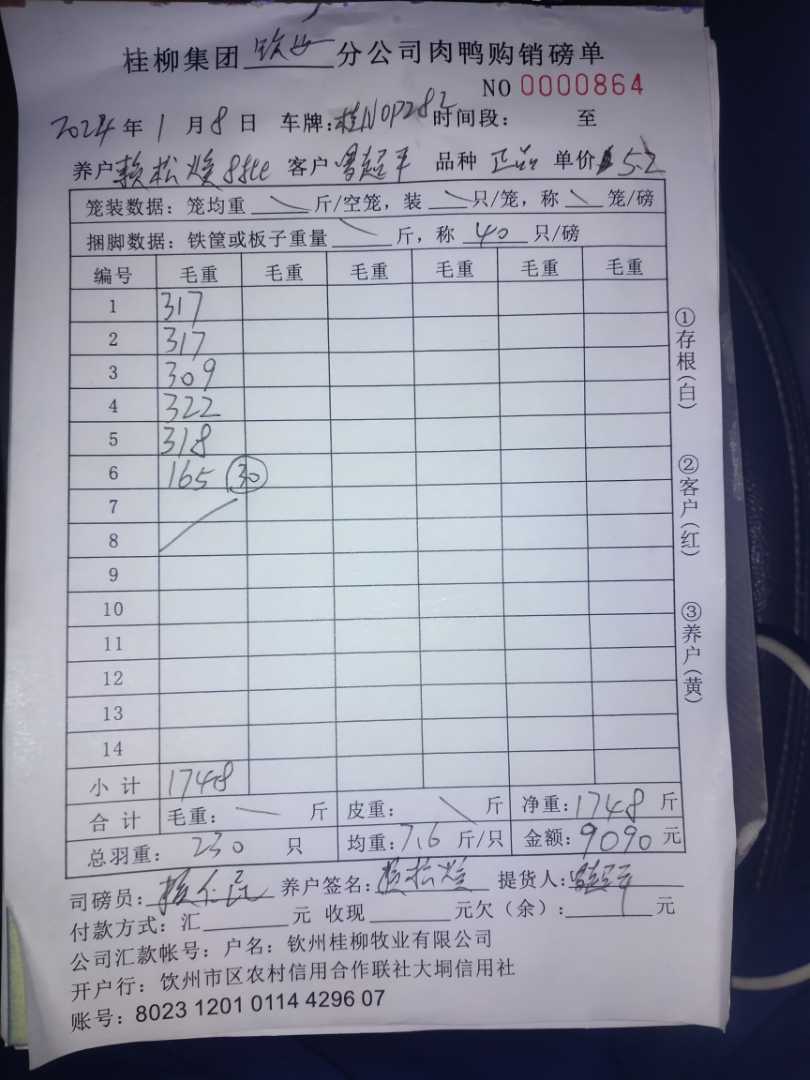 桂柳集团 钦州 分公司肉鸭购销磅单
NO 0000864
2024 年 1 月 8 日 车牌: 桂N0P282 时间段: 至
养户 赖松焕 客户 曾超平 品种 正品 单价 5.2
笼装数据: 笼均重 斤/空笼, 装 只/笼, 称 笼/磅
捆脚数据: 铁筐或板子重量 斤, 称 40 只/磅
编号 毛重 毛重 毛重 毛重 毛重 毛重
1 317
2 317
3 309
4 322
5 318
6 165 30
7
8
9
10
11
12
13
14
小 计 1748
合 计 毛重: 斤 皮重: 斤 净重: 1748 斤
总羽重: 230 只 均重: 7.6 斤/只 金额: 9090 元
司磅员: 养户签名: 赖松焕 提货人: 曾超平
付款方式: 汇 元 收现 元欠(余): 元
公司汇款帐号: 户名: 钦州桂柳牧业有限公司
开户行: 饮州市区农村信用合作联社大垌信用社
账号: 8023 1201 0114 4296 07
①存根(白)
②客户(红)
③养户(黄)